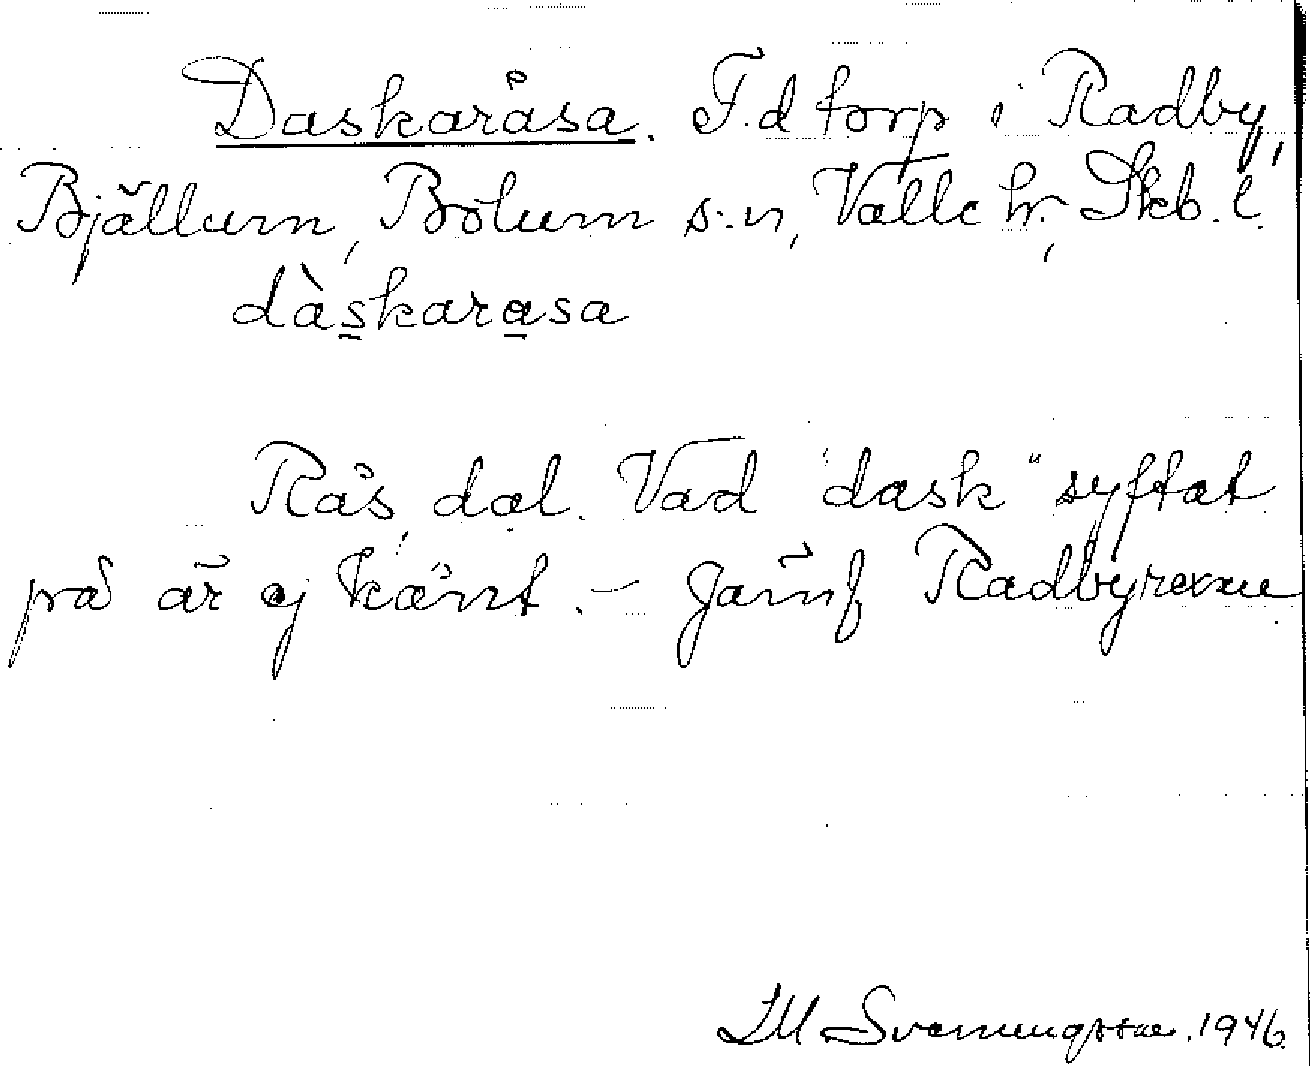 Daskaråsa. F.d torp i Radby,
Bjällum, Bolum s:n, Valle hr, Skb. l.
dàskarasa
Rås, dal. Vad "dask" syftat
på är ej känt. – Jämf Radbyrasae
LM Svenungsson. 1946.